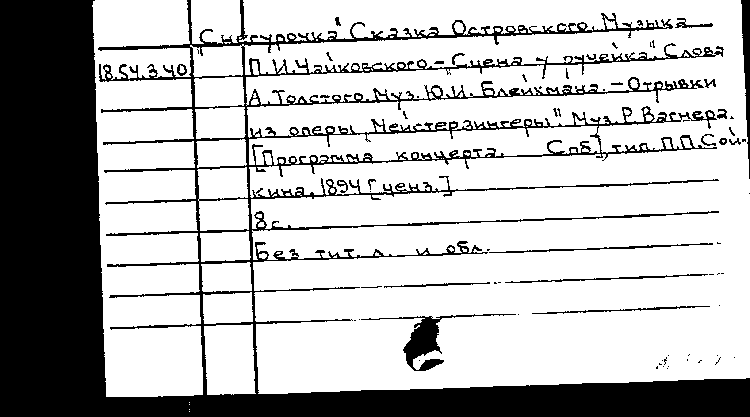 "Снегурочка" Сказка Островского. Музыка
18.54.3.40 П.И. Чайковского. - "Сцена у ручейка". Слова
А. Толстого. Муз. Ю.И. Блейхмана. - Отрывки
из оперы "Мейстерзингеры" Муз. Р. Вагнера.
[Программа концерта. Спб.], тип. П.П. Сой-
кина, 1894 [ценз.]
8 с.
Без тит. л. и обл.